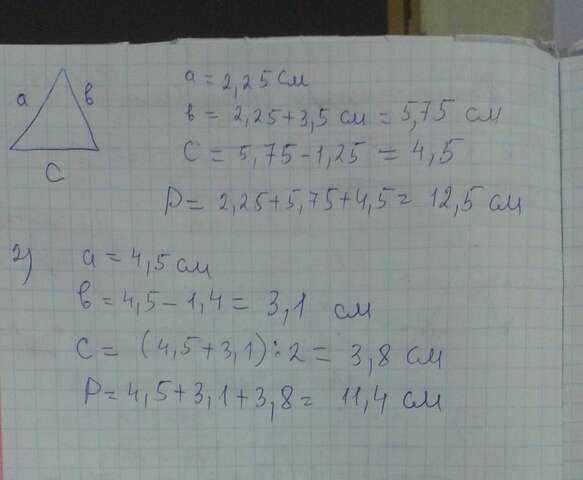 a
в
c
a = 2,25 см
в = 2,25+3,5 см = 5,75 см
c = 5,75-1,25 = 4,5
P = 2,25+5,75+4,5= 12,5 см
2)
a = 4,5 см
в = 4,5 - 1,4 = 3,1 см
c = (4,5+3,1):2 = 3,8 см
P = 4,5+3,1+3,8= 11,4 см